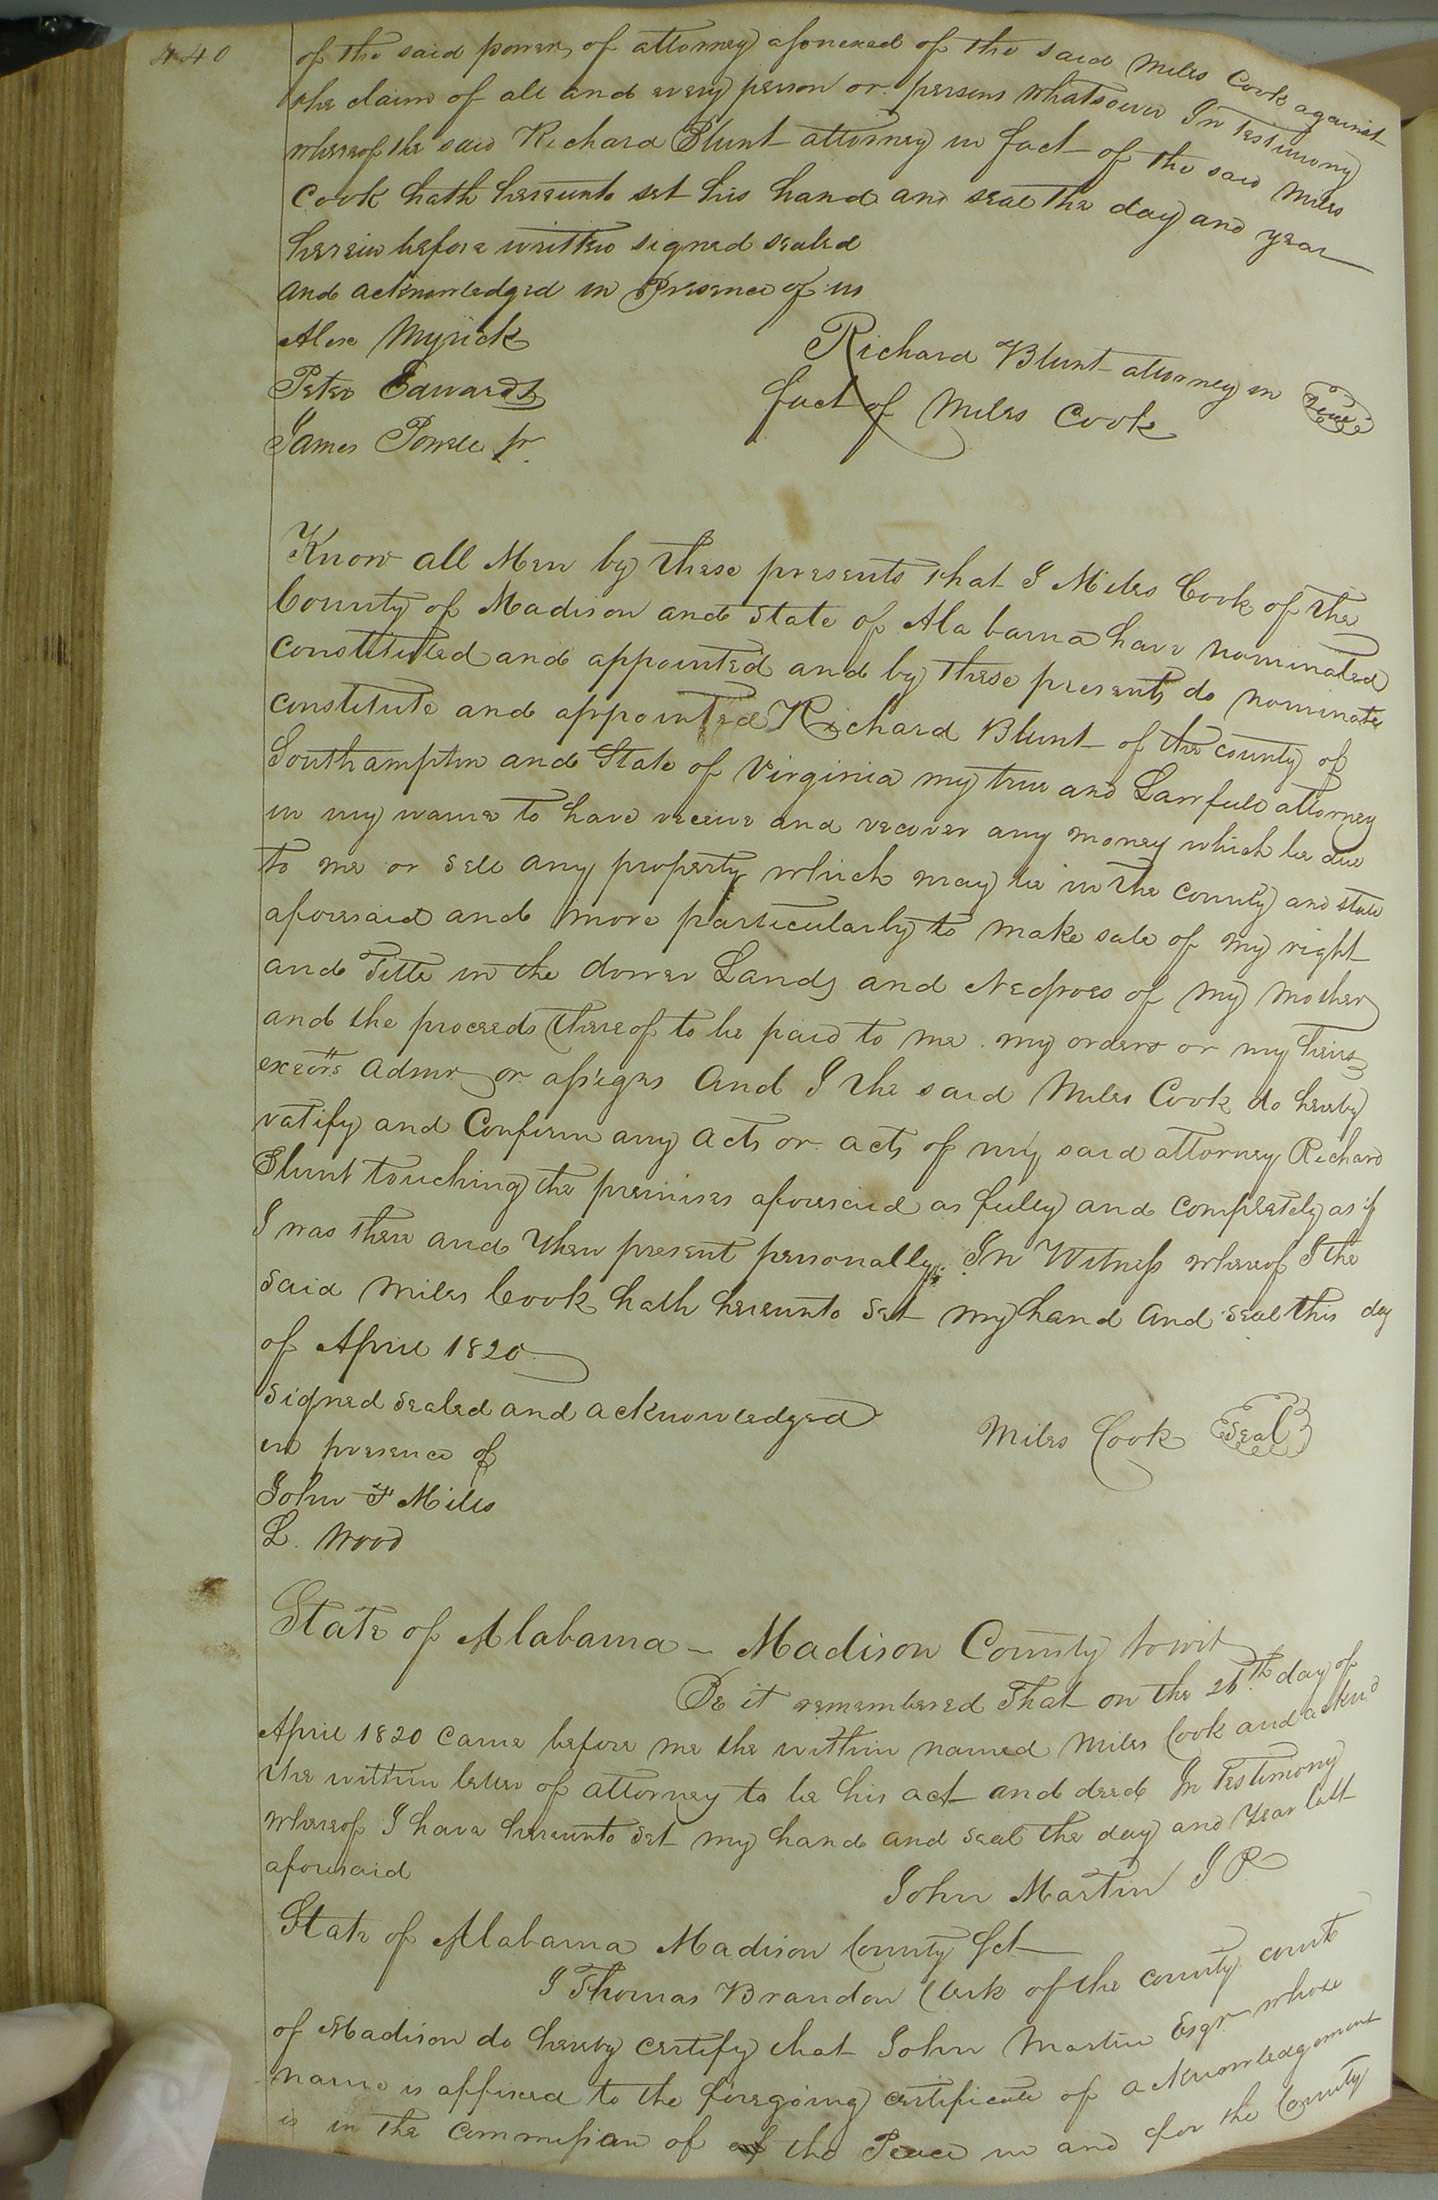 440
of the said power of attorney afonexed of the said Miles Cook against
the claim of all and every person or persons whatsoever In Testimony
whereof the said Richard Blunt attorney in fact of the said Miles
Cook hath hereunto set his hand and seal the day and year
herein before written signed sealed
and acknowledged in Presence of us
Alex Myrick
Peter Edwards
James Powell jr.
Richard Blunt attorney in
fact of Miles Cook
Seal
Know all Men by these presents that I Miles Cook of the
County of Madison and State of Alabama have nominated
constituted and appointed and by these presents do nominate
constitute and appointed Richard Blunt of the county of
Southampton and State of Virginia my true and Lawfull attorney
in my name to have receive and recover any money which be due
to me or sell any property which may be in the county and state
aforesaid and more particularly to make sale of my right
and Title in the dower Lands and Negroes of my mother
and the proceeds thereof to be paid to me my orders or my heirs
exectrs Admr or assigns And I the said Miles Cook do hereby
ratify and Confirm any acts or acts of my said attorney Richard
Blunt touching the premises aforesaid as fully and completely as if
I was there and then present personally. In Witness whereof I the
said Miles Cook hath hereunto set my hand and seal this day
of April 1820
signed sealed and acknowledged
in presence of
John F Miles
L. Wood
Miles Cook Seal
State of Alabama - Madison County towit
Be it remembered That on the 26th day of
April 1820 came before me the within named Miles Cook and acknd
the within letter of attorney to be his act and deed In Testimony
whereof I have hereunto set my hand and seal the day and year last
aforesaid
John Martin J P
State of Alabama Madison County Sct
I Thomas Brandon Clerk of the county court
of Madison do hereby certify that John Martin Esqr whose
name is affixed to the foregoing certificate of acknowledgement
is in the commission of of the Peace in and for the County